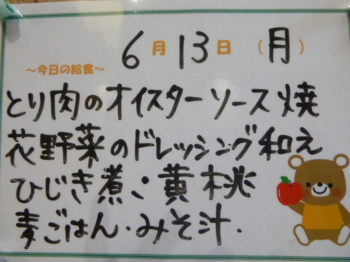 6月13日(月)
〜今日の給食〜
とり肉のオイスターソース焼
花野菜のドレッシング和え
ひじき煮・黄桃
麦ごはん・みそ汁.